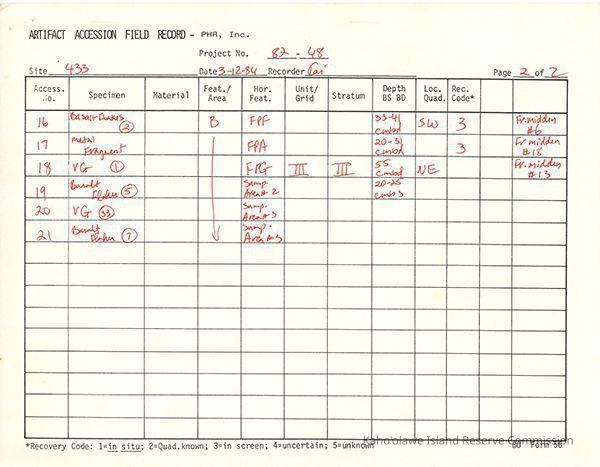 ARTIFACT ACCESSION FIELD RECORD - PHR, Inc.
Project No. 82 - 48
Site 433 Date 3-12-84 Recorder Page 2 of 2
Access. No. Specimen Material Feat./ Area Hor. Feat. Unit/ Grid Stratum Depth BS BD Loc. Quad. Rec. Code*
16 Basalt Flakes (2) B FPF 33-41 cmbd SW 3 Fr. midden #6
17 Metal Fragment FPA 20-31 cmbd 3 Fr midden #18
18 VG (1) FPG III III 55 cmbd NE Fr. midden #13
19 Basalt Flakes (5) Samp. Area # 2 20-25 cmbs
20 VG (33) Samp. Area # 3
21 Basalt Flakes (7) Samp. Area # 3
*Recovery Code: 1=in situ; 2=Quad.known; 3=in screen; 4=uncertain; 5=unknown
Kaho'olawe Island Reserve Commission
Form 56